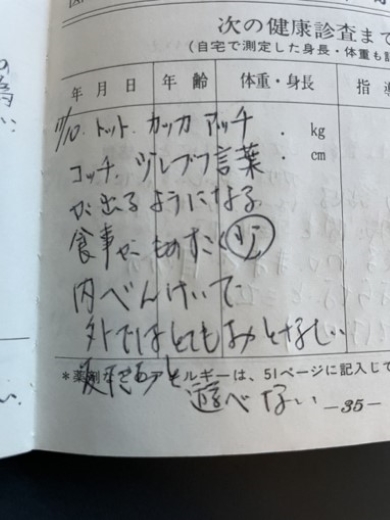 次の健康診査まで
(自宅で測定した身長・体重も
年月日 年齢 体重・身長 指導
11/10. トット. カッカ アッチ ・ kg
コッチ. 言葉 ・ cm
が出るようになる
食事がものすごく
内べんけいで
外ではとてもおとなしい
*薬剤などのアレルギーは、51ページに記入して
友だちと
遊べない —35—